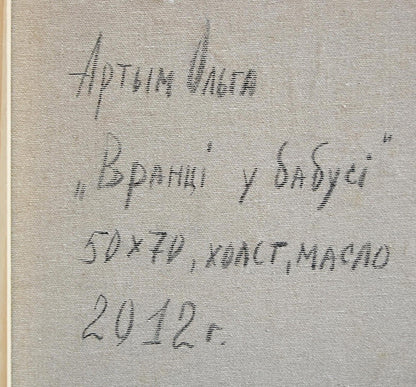 Артым Ольга
„Вранці у бабусі"
50х70, холст, масло
2012 г.